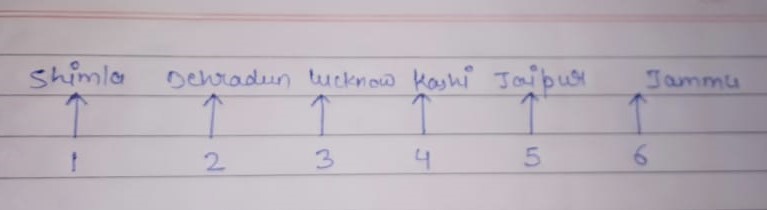 Shimla Dehradun Lucknow Kashi Jaipur Jammu
1 2 3 4 5 6